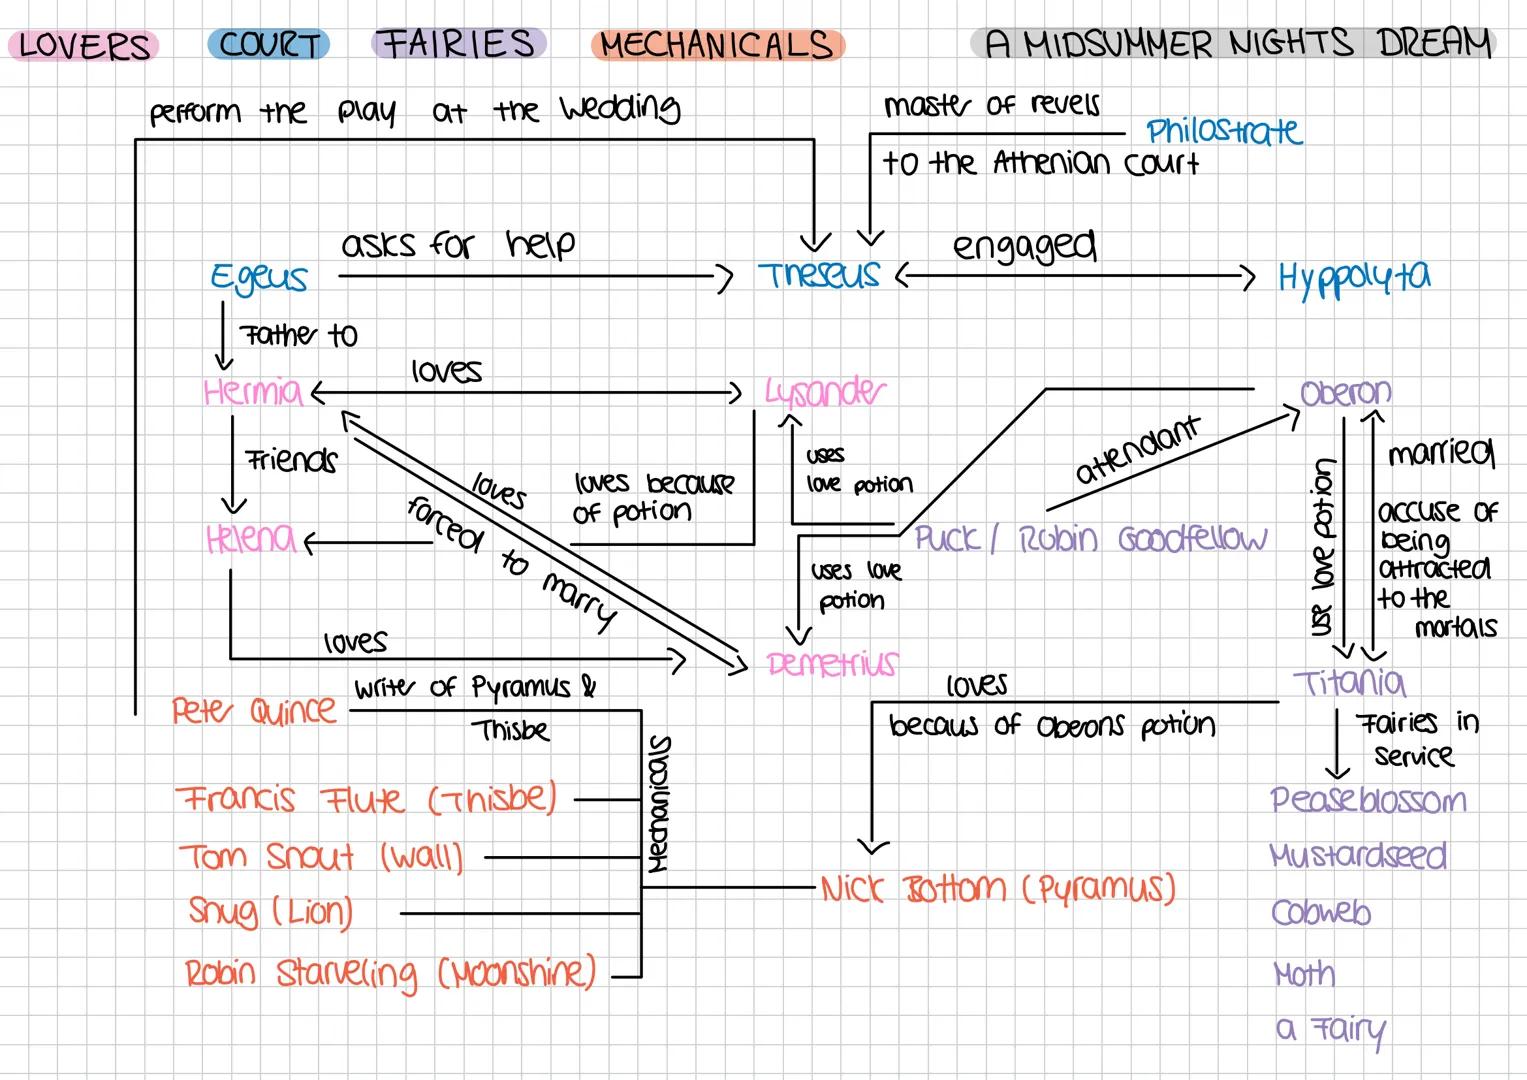 LOVERS COURT FAIRIES MECHANICALS A MIDSUMMER NIGHTS DREAM
perform the play at the wedding
master of revels
Philostrate
to the Athenian court
asks for help
engaged
Egeus
Theseus
Hyppolyta
Father to
loves
Hermia
Lysander
Oberon
attendant
Friends
uses
love potion
married
loves
loves because
of potion
forced to marry
use love potion
accuse of
being
attracted
to the
mortals
Helena
Puck / Robin Goodfellow
uses love
potion
loves
Demetrius
Titania
writer of Pyramus &
Thisbe
Peter Quince
loves
becaus of Oberons potion
Fairies in
service
Mechanicals
Francis Flute (Thisbe)
Peaseblossom
Tom Snout (Wall)
Mustardseed
Nick Bottom (Pyramus)
Snug (Lion)
Cobweb
Robin Starveling (Moonshine)
Moth
a Fairy